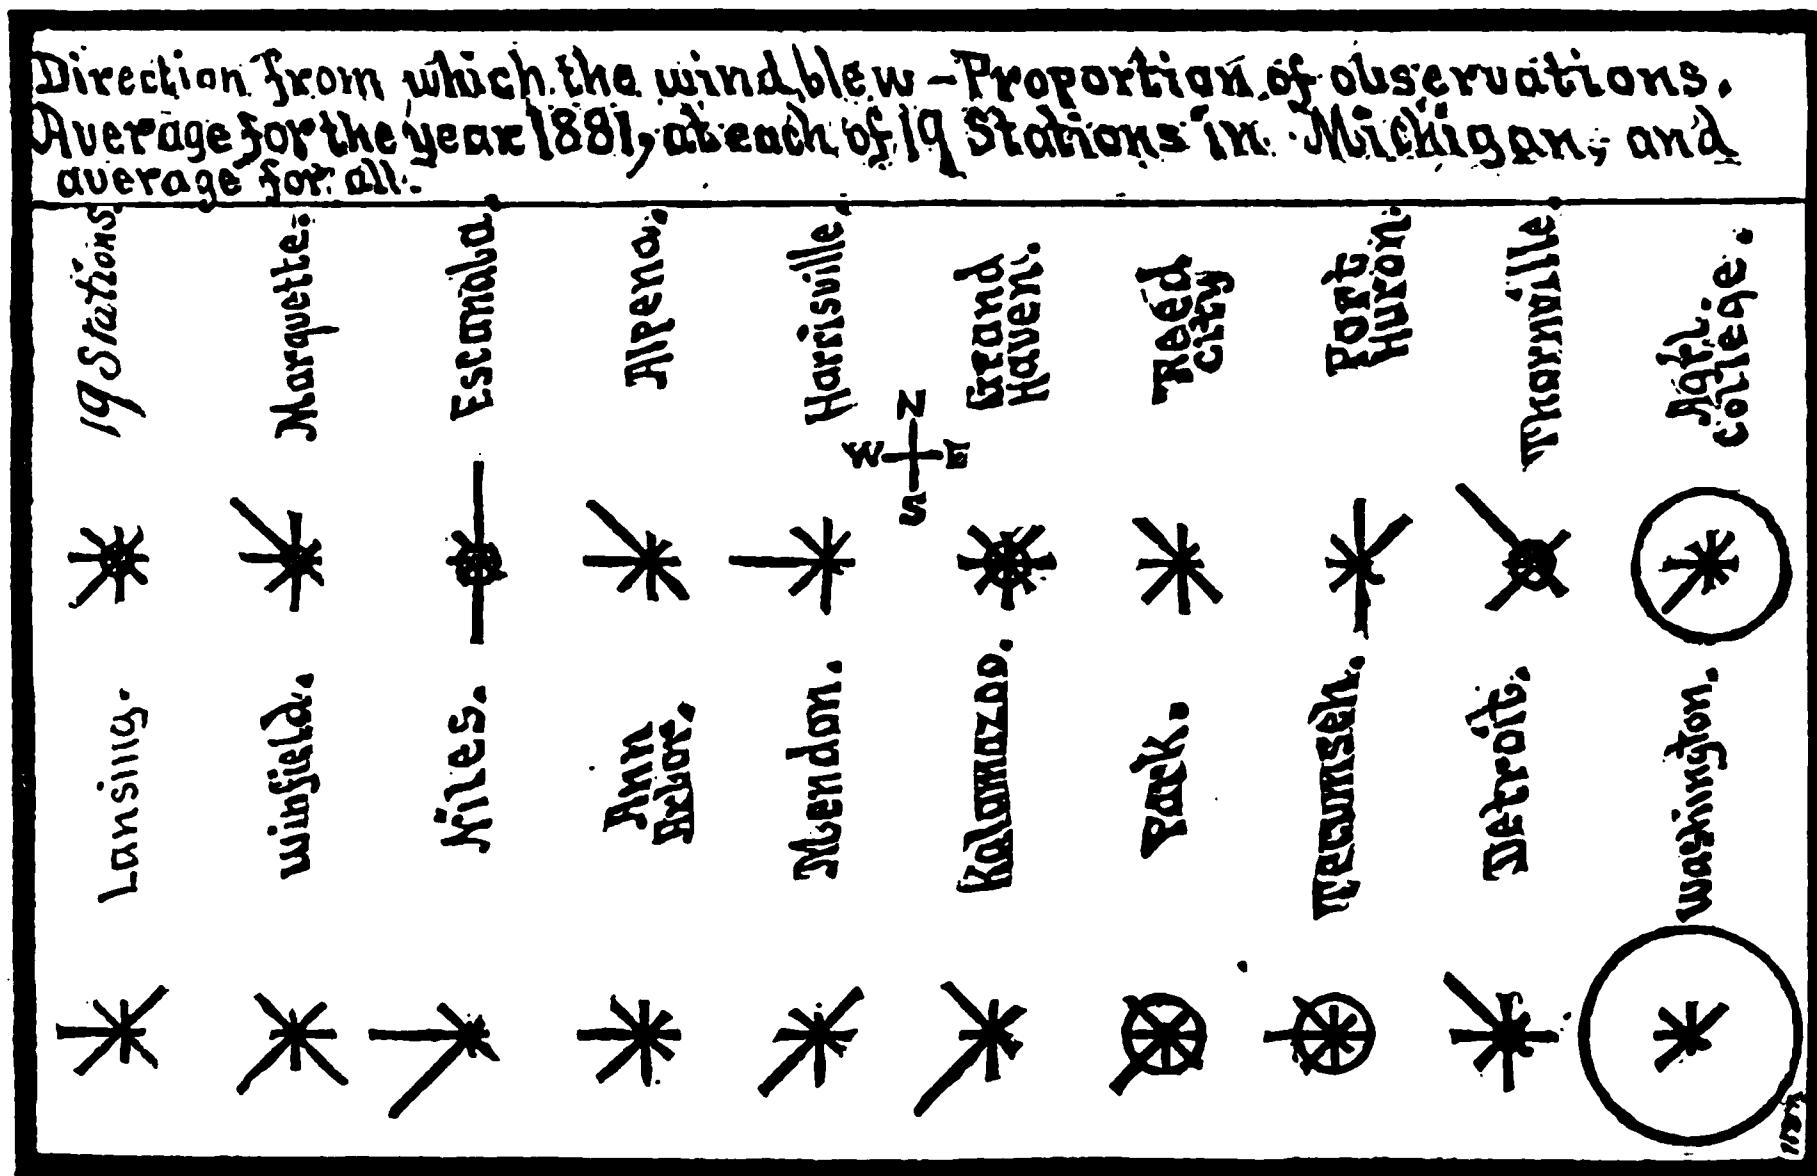 Direction from which the wind blew – Proportion of observations.
Average for the year 1881, at each of 19 Stations in Michigan, and
average for all.
19 Stations.
Marquette.
Escanaba.
Alpena.
Harrisville.
Grand
Haven.
Reed
City
Port
Huron.
Thornville.
Agrl.
College.
N
W E
S
Lansing.
Winfield.
Niles.
Ann
Arbor.
Mendon.
Kalamazoo.
Park.
Tecumseh.
Detroit.
Washington.